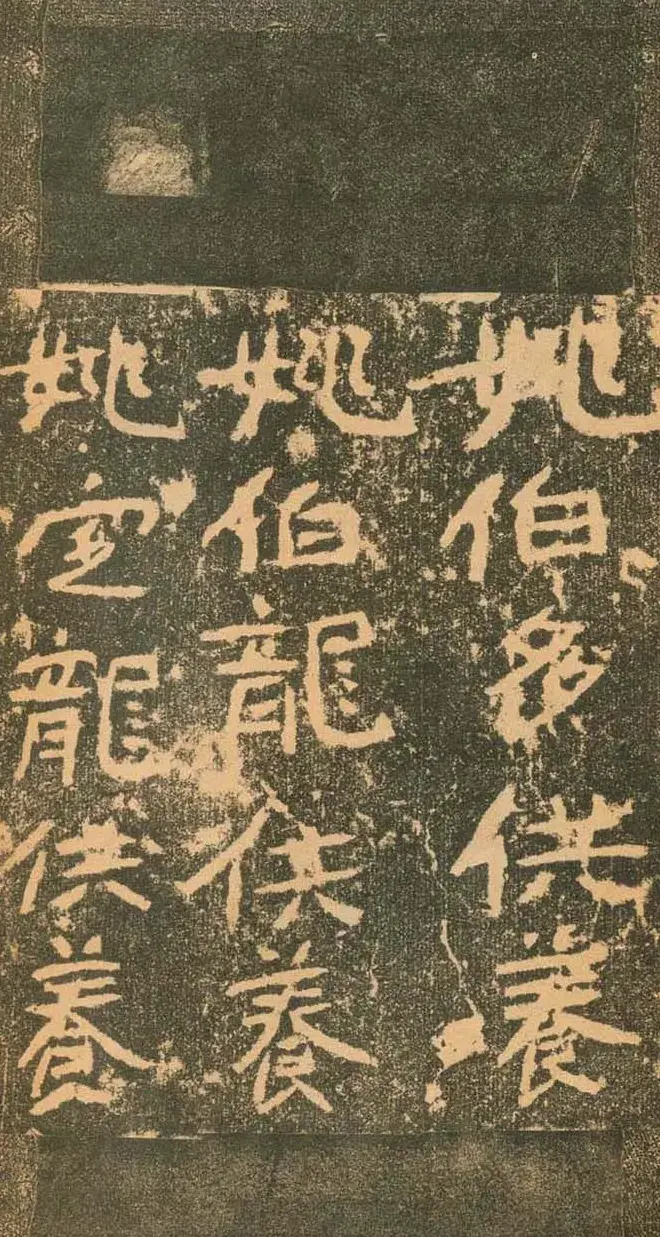 姚伯多供養
姚伯龍供養
姚定龍供養